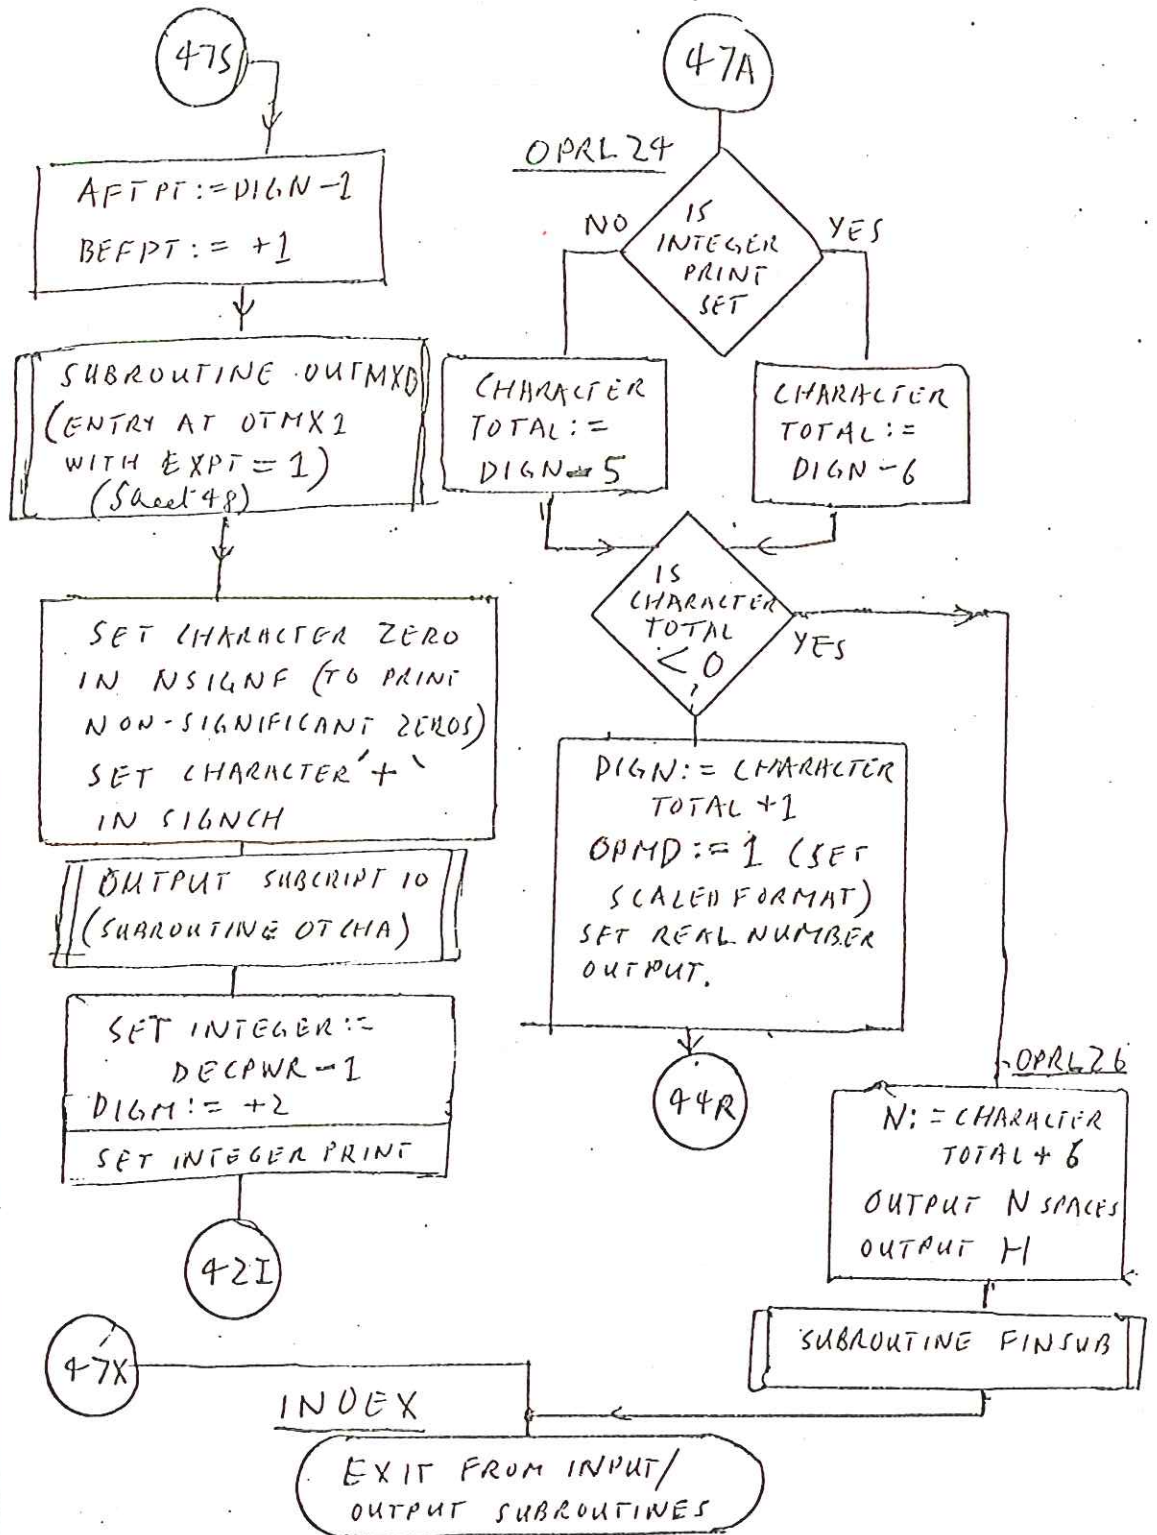 47S
AFTPT:=DIGN-1
BEFPT:= +1
SUBROUTINE OUTMXD
(ENTRY AT OTMX1
WITH EXPT=1)
(Sheet 48)
SET CHARACTER ZERO
IN NSIGNF (TO PRINT
NON-SIGNIFICANT ZEROS)
SET CHARACTER '+'
IN SIGNCH
OUTPUT SUBCRIPT 10
(SUBROUTINE OTCHA)
SET INTEGER:=
DECPWR-1
DIGM:= +2
SET INTEGER PRINT
42I
47A
OPRL24
IS
INTEGER
PRINT
SET
NO
YES
CHARACTER
TOTAL:=
DIGN-5
CHARACTER
TOTAL:=
DIGN-6
IS
CHARACTER
TOTAL
<0
?
YES
DIGN:= CHARACTER
TOTAL +1
OPMD:=1 (SET
SCALED FORMAT)
SET REAL NUMBER
OUTPUT.
44R
OPRL26
N:=CHARACTER
TOTAL+6
OUTPUT N SPACES
OUTPUT H
SUBROUTINE FINSUB
47X
INDEX
EXIT FROM INPUT/
OUTPUT SUBROUTINES